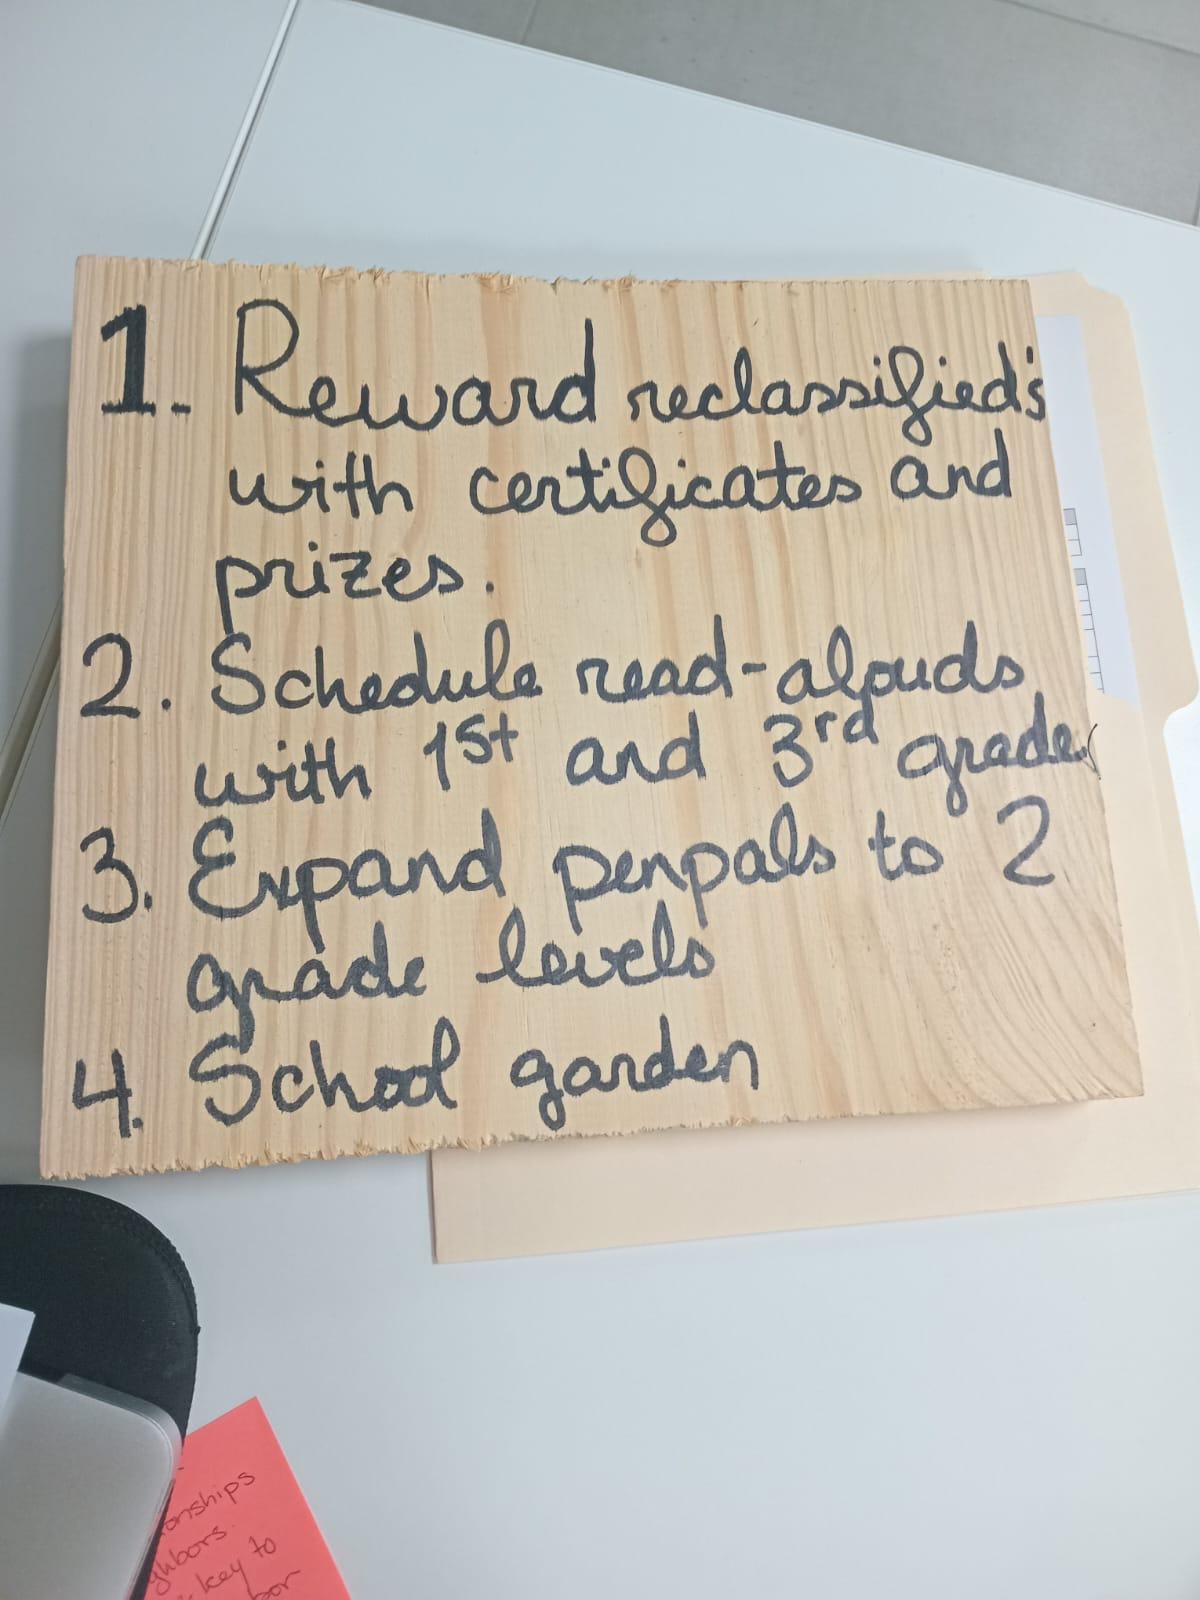 1. Reward reclassified's
with certificates and
prizes.
2. Schedule read-alouds
with 1st and 3rd grade
3. Expand penpals to 2
grade levels
4. School garden
onships
ghbors.
key to
bor